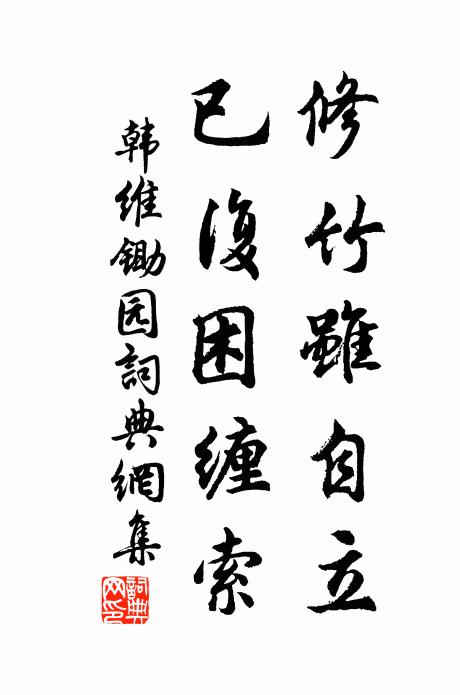 修竹雖自立
已復困缠索
韩维锄园詞典網集
詞典网印